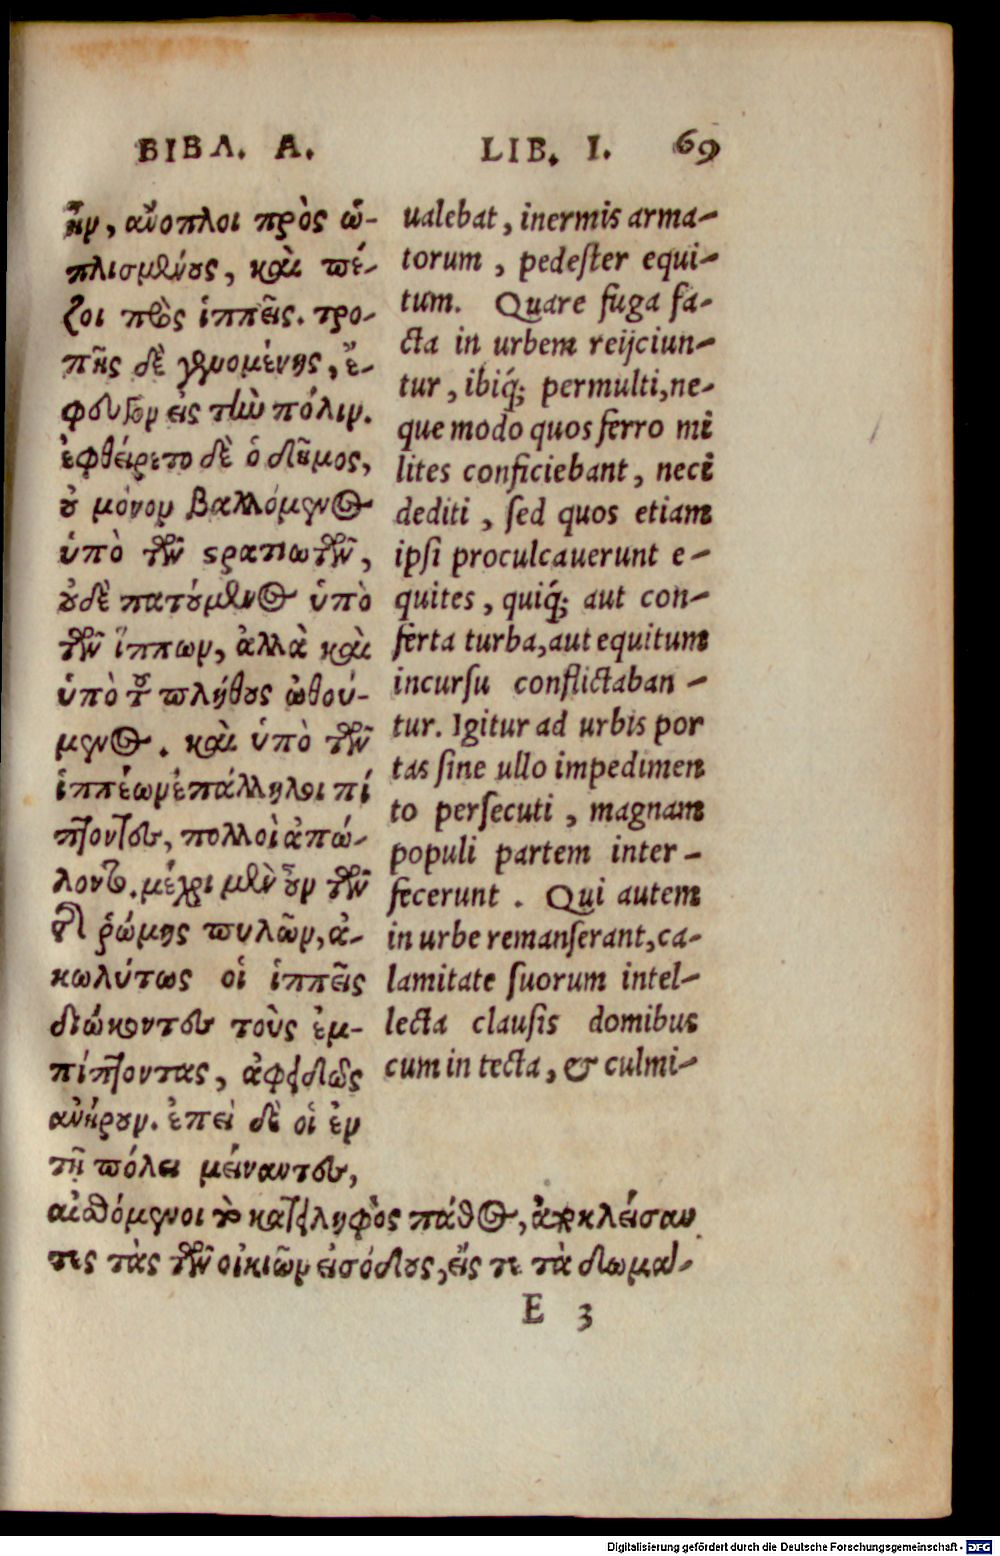 ΒΙΒΛ. Α.
ἦν, ἄνοπλοι πρὸς ὡ-
πλισμένους, καὶ πέ-
ζοι πρὸς ἱππεῖς. τρο-
πῆς δὲ γενομένης, ἔ-
φευγον εἰς τὴν πόλιν.
ἐφθείρετο δὲ ὁ δῆμος,
οὐ μόνον βαλλόμενος
ὑπὸ τῶν στρατιωτῶν,
οὐδὲ πατούμενος ὑπὸ
τῶν ἵππων, ἀλλὰ καὶ
ὑπὸ τοῦ πλήθους ὠθού-
μενος. καὶ ὑπὸ τῶν
ἱππέων ἐπάλληλοι πί
πτοντες, πολλοὶ ἀπώ-
λοντο. μέχρι μὲν οὖν τῶν
τῆς ῥώμης πυλῶν, ἀ-
κωλύτως οἱ ἱππεῖς
διώκοντες τοὺς ἐμ-
πίπτοντας, ἀφειδῶς
ἀνῄρουν. ἐπεὶ δὲ οἱ ἐν
τῇ πόλει μείναντες,
αἰσθόμενοι τὸ κατειληφὸς πάθος, ἀποκλείσαν
τες τὰς τῶν οἰκιῶν εἰσόδους, εἴς τε τὰ δωμα-
LIB. I. 69
ualebat, inermis arma-
torum, pedester equi-
tum. Quare fuga fa-
cta in urbem reijciun-
tur, ibiq́; permulti, ne-
que modo quos ferro mi
lites conficiebant, neci
dediti, sed quos etiam
ipsi proculcauerunt e-
quites, quiq́; aut con-
ferta turba, aut equitum
incursu conflictaban-
tur. Igitur ad urbis por
tas sine ullo impedimen
to persecuti, magnam
populi partem inter-
fecerunt. Qui autem
in urbe remanserant, ca-
lamitate suorum intel-
lecta clausis domibus
cum in tecta, & culmi-
E 3
Digitalisierung gefördert durch die Deutsche Forschungsgemeinschaft - DFG